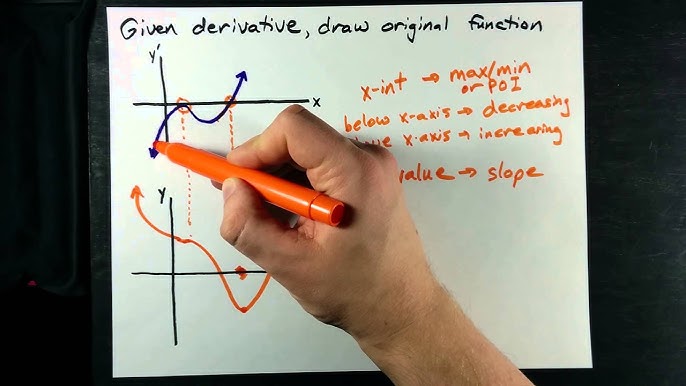 Given derivative, draw original function
y'
x
x-int → max/min
or POI
below x-axis → decreasing
x-axis → increasing
value → slope
y